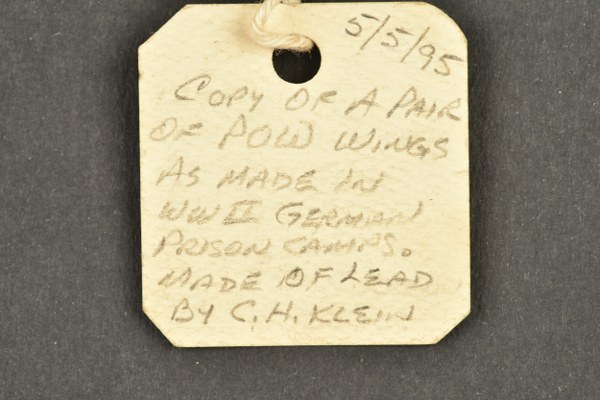 5/5/95
COPY OF A PAIR
OF POW WINGS
AS MADE IN
WW II GERMAN
PRISON CAMPS.
MADE OF LEAD
BY C.H. KLEIN